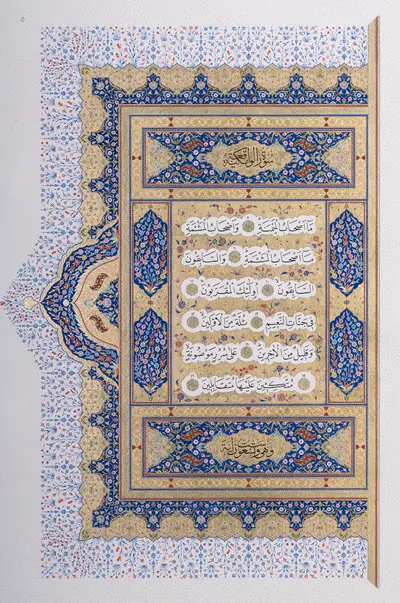 ٥
سورة الواقعة مكية
مَا أَصْحَابُ الْمَيْمَنَةِ وَأَصْحَابُ الْمَشْئَمَةِ
مَا أَصْحَابُ الْمَشْئَمَةِ وَالسَّابِقُونَ
السَّابِقُونَ أُولَئِكَ الْمُقَرَّبُونَ
فِي جَنَّاتِ النَّعِيمِ ثُلَّةٌ مِنَ الْأَوَّلِينَ
وَقَلِيلٌ مِنَ الْآخِرِينَ عَلَى سُرُرٍ مَوْضُونَةٍ
مُتَّكِئِينَ عَلَيْهَا مُتَقَابِلِينَ
وهي ست وتسعون آية